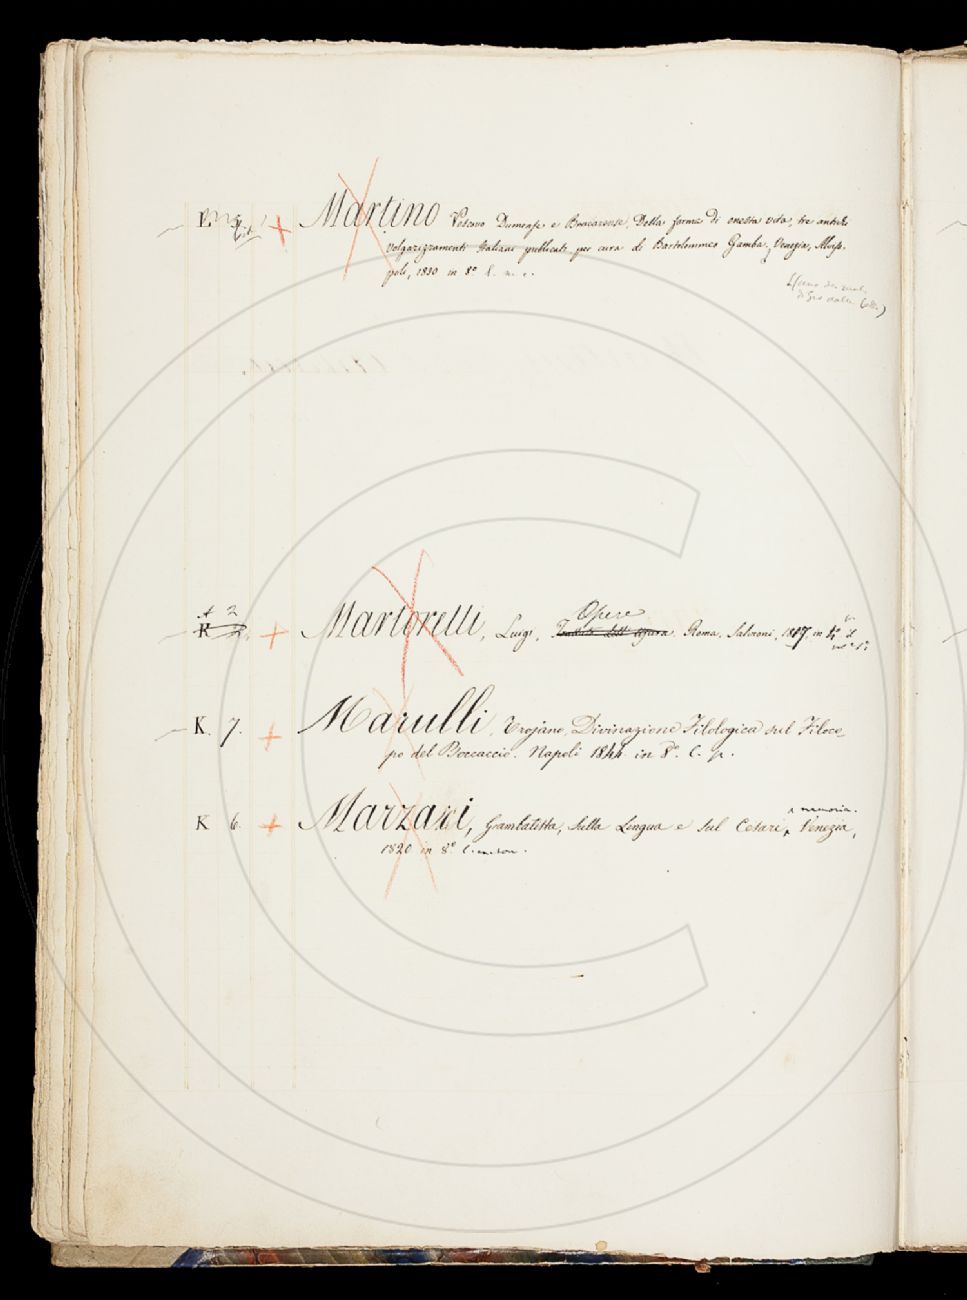 Martino Vescovo Dumense e Bracarense, Della forma di onesta vita, tre antichi
volgarizzamenti Italiani pubblicati per cura di Bartolommeo Gamba, Venezia, Alviso-
poli, 1830 in 8º
A 2
Opere
Martorelli, Luigi, Roma, Salvioni, in
K. 7. Marulli, Trojano, Divinazione Filologica sul Filoco-
po del Boccaccio. Napoli 1844 in 8º. l. p.
e memoria.
K 6. Marzari, Giambatista, Sulla Lingua e sul Cesari, Venezia,
1820 in 8º